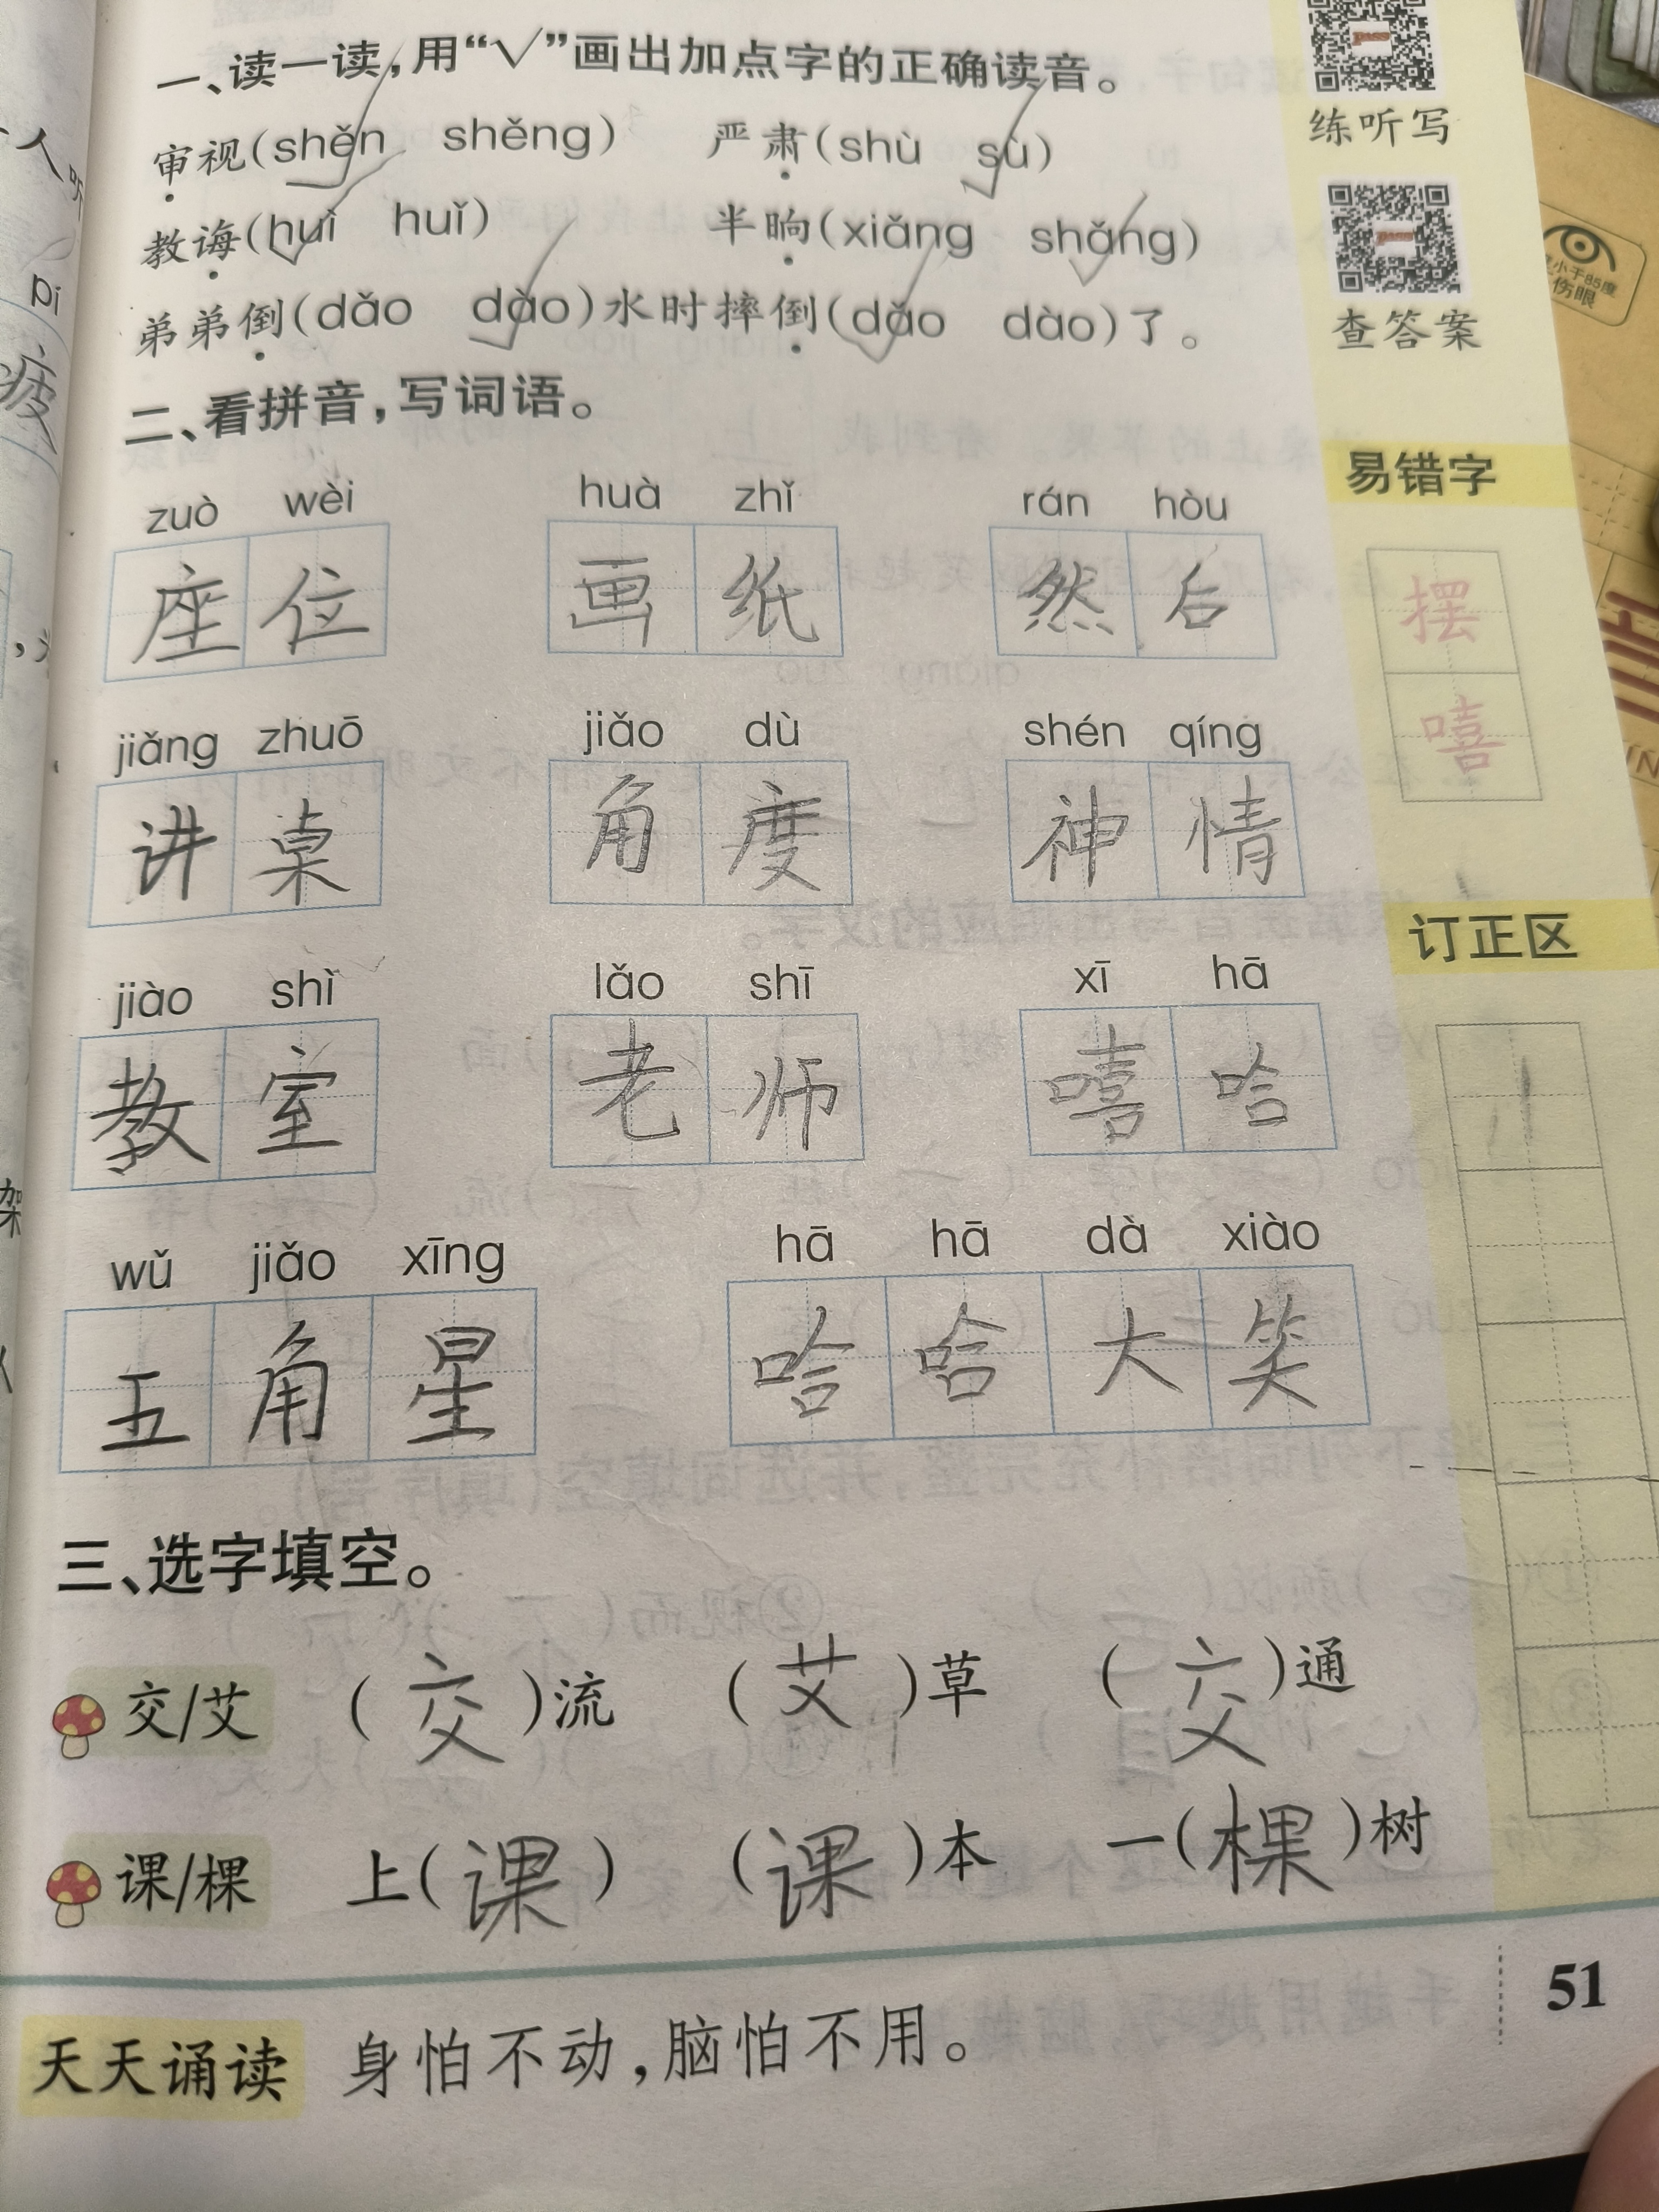 一、读一读,用“√”画出加点字的正确读音。
审视(shěn shěng) 严肃(shù sù)
教诲(huì huǐ) 半晌(xiǎng shǎng)
弟弟倒(dǎo dào)水时摔倒(dǎo dào)了。
二、看拼音,写词语。
zuò wèi huà zhǐ rán hòu
座位 画纸 然后
jiǎng zhuō jiǎo dù shén qíng
讲桌 角度 神情
jiào shì lǎo shī xī hā
教室 老师 嘻哈
wǔ jiǎo xīng hā hā dà xiào
五角星 哈哈大笑
三、选字填空。
交/艾 (交)流 (艾)草 (交)通
课/棵 上(课) (课)本 一(棵)树
天天诵读 身怕不动,脑怕不用。
51
练听写
查答案
易错字
摆
嘻
订正区
人
听
pi
疲
架
伤眼